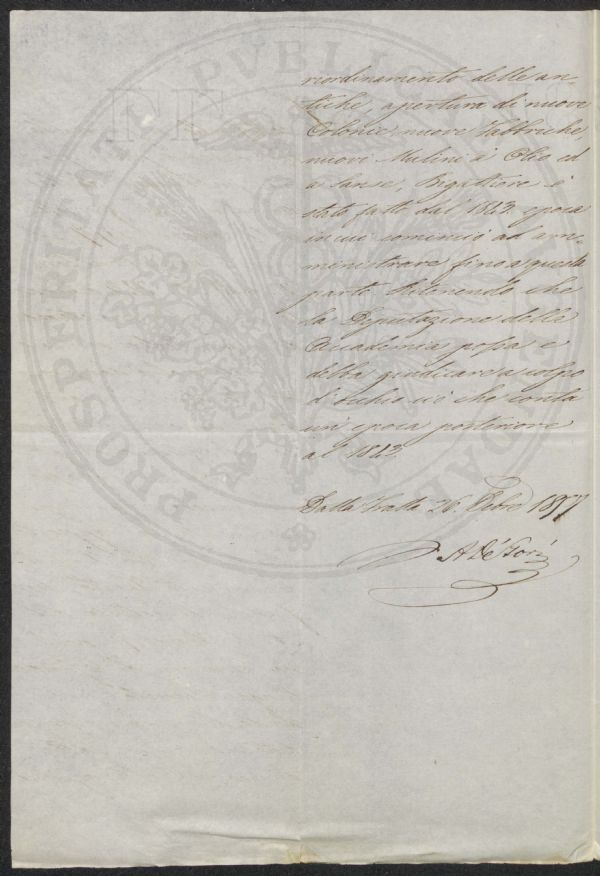 riordinamento delle an-
tiche, apertura di nuove
Colonie, nuove Fabbriche,
nuovi Mulini a Olio ed
a Sanse, Bigattiere è
stato fatto dal 1843 epoca
in cui cominciò ad am-
ministrare fino a questa
parte ritenendo che
la Deputazione della
Accademia possa e
debba giudicare a colpo
d'occhio ciò che conta
un'epoca posteriore
al 1843
Dalla 26. Febbo 1857
A De' Gori
PROSPERITATI PVBLICAE AVGENDAE